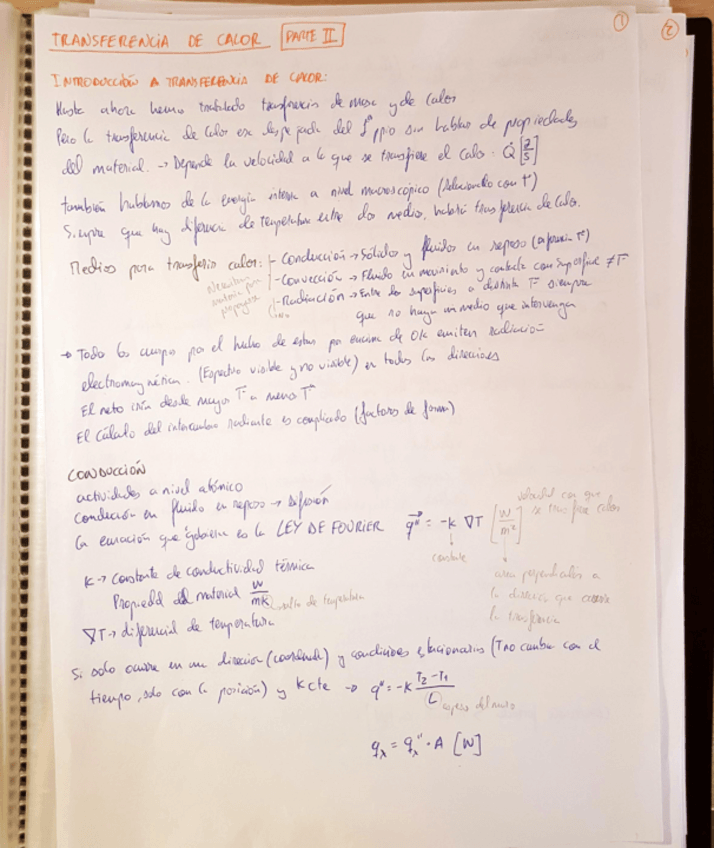 ①
②
TRANSFERENCIA DE CALOR PARTE II
INTRODUCCIÓN A TRANSFERENCIA DE CALOR:
Hasta ahora hemos trabajado transferencia de masa y de calor
Pero la transferencia de calor era despejada del 1er ppio sin hablar de propiedades
del material. → Depende la velocidad a la que se transfiere el calor. Q̇ [J/s]
también hablamos de la energía interna a nivel macroscópico (relacionado con Tª)
Siempre que hay diferencia de temperatura entre dos medios, habrá transferencia de calor.
Medios para transferir calor: - Conducción → Sólidos y fluidos en reposo (diferencia Tª)
- Convección → Fluido en movimiento y contacto con superficie ≠ Tª
- Radiación → Entre dos superficies a distinta Tª siempre
que no haya un medio que intervenga
Necesitan materia para propagarse
→ Todo los cuerpos por el hecho de estar por encima de 0K emiten radiación
electromagnética. (Espectro visible y no visible) en todas las direcciones
El neto irán desde mayor Tª a menor Tª
El cálculo del intercambio radiante es complicado (factores de forma)
CONDUCCIÓN
actividades a nivel atómico
conducción en fluido en reposo → difusión
la ecuación que gobierna es la LEY DE FOURIER q⃗" = -K ∇T [W/m²]
velocidad con que se transfiere calor
constante
área perpendicular a la dirección que ocurre la transferencia
K → Constante de conductividad térmica
Propiedad del material W/mK salto de temperatura
∇T → diferencial de temperatura
Si solo ocurre en una dirección (coordenada) y condiciones estacionarias (T no cambia con el
tiempo, solo con la posición) y K cte → q" = -K (T₂ - T₁)/L
espesor del muro
qₓ = qₓ" · A [W]